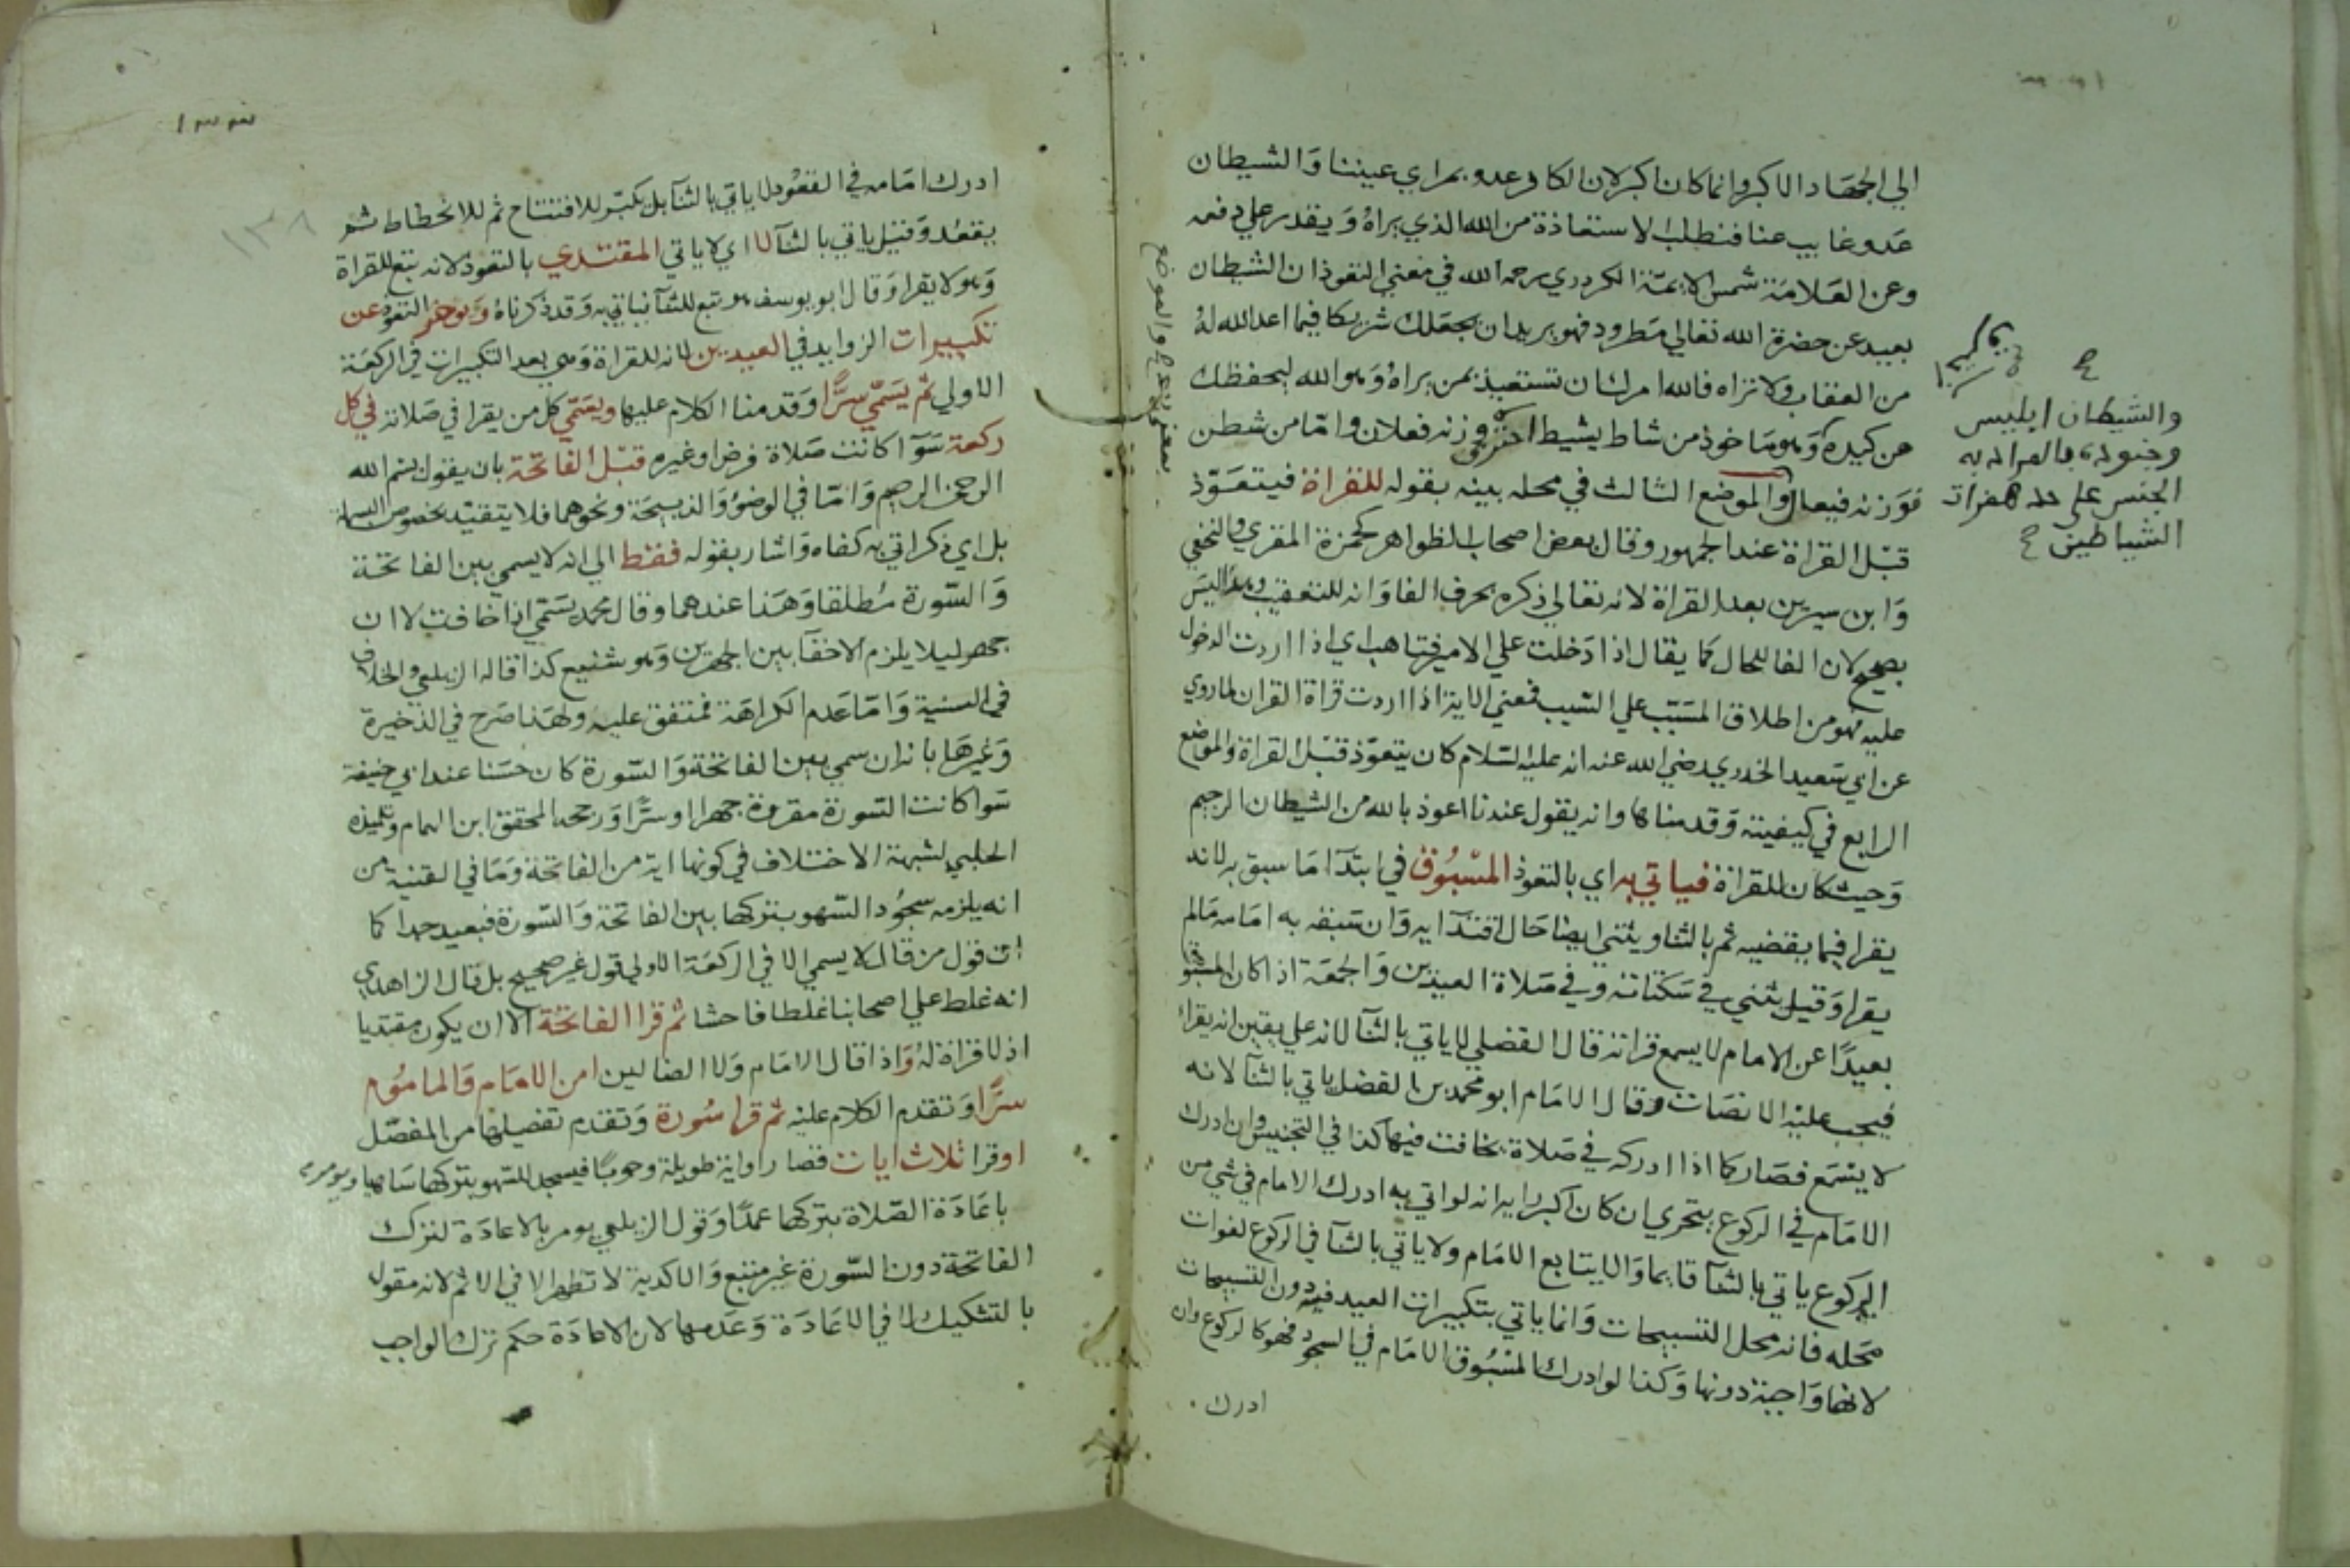 الي الجهاد الاكبر وانما كان اكبر لان الكافر عدو بمراي عيننا والشيطان
عدو غايب عنا فنطلب الاستعاذة من الله الذي يراه ويقدر علي دفعه
وعن العلامة شمس الايمة الكردري رحمه الله في معني التعوذ ان الشيطان
بعيد عن حضرة الله تعالي مطرود فهو يريد ان يجعلك شريكا فيما اعد الله له
من العقاب ولا تراه فالله امرك ان تستعيذ بمن يراه وهو الله ليحفظك
من كيده وهو ماخوذ من شاط يشيط احترق وزنه فعلان واما من شطن
فوزنه فيعال والموضع الثالث في محله بينه بقوله للقراة فيتعوذ
قبل القراة عند الجمهور وقال بعض اصحاب الظواهر كحمزة المقري والنخعي
وابن سيرين بعد القراة لانه تعالي ذكره بحرف الفا وانه للتعقيب وهذا ليس
بصحيح لان الفا للحال كما يقال اذا دخلت علي الامير فتاهب اي اذا اردت الدخول
عليه فهو من اطلاق المسبب علي السبب فمعني الاية اذا اردت قراة القران لما روي
عن ابي سعيد الخدري رضي الله عنه انه عليه السلام كان يتعوذ قبل القراة والموضع
الرابع في كيفيته وقدمناها وانه يقول عندنا اعوذ بالله من الشيطان الرجيم
وحيث كان للقراة فياتي به اي بالتعوذ المسبوق في ابتدآ ما سبق به لانه
يقرا فيما يقضيه ثم بالثنا ويثني ايضا حال اقتدآيه وان سبقه به امامه مالم
يقرا وقيل يثني في سكتاته وفي صلاة العيدين والجمعة اذا كان المسبوق
بعيدا عن الامام لا يسمع قراته قال الفضلي لا ياتي بالثنآ لانه علي يقين انه يقرا
فيجب عليه الانصات وقال الامام ابو محمد بن الفضل ياتي بالثنآ لانه
لا يسمع فصار كما اذا ادركه في صلاة يخافت فيها كذا في التجنيس وان ادرك
الامام في الركوع يتحري ان كان اكبر رايه انه لو اتي به ادرك الامام في شي من
الركوع ياتي بالثنآ قايما والا يتابع الامام ولا ياتي بالثنآ في الركوع لفوات
محله فانه محل التسبيحات وانما ياتي بتكبيرات العيد فيه دون التسبيحات
لانها واجبة دونها وكذا لو ادرك المسبوق الامام في السجود فهو كالركوع وان
ادرك
والشيطان ابليس
وجنوده فالمراد به
الجنس علي حد همزات
الشياطين
١٣٣
١٣٨
ادرك امامه في القعود لا ياتي بالثنآ بل يكبر للافتتاح ثم للانحطاط ثم
يقعد وقيل ياتي بالثنآ لا اي لا ياتي المقتدي بالتعوذ لانه تبع للقراة
وهو لا يقرا وقال ابو يوسف هو تبع للثنآ فياتي به وقد ذكرناه ويوخر التعوذ عن
تكبيرات الزوايد في العيدين لانه للقراة وهي بعد التكبيرات في الركعة
الاولي ثم يسمي سرا وقدمنا الكلام عليها ويسمي كل من يقرا في صلاته في كل
ركعة سوآ كانت صلاة فرض او غيره قبل الفاتحة بان يقول بسم الله
الرحمن الرحيم واما في الوضؤ والذبيحة ونحوهما فلا يتقيد بخصوص البسملة
بل اي ذكر اتي به كفاه واشار بقوله فقط الي انه لا يسمي بين الفاتحة
والسورة مطلقا وهذا عندهما وقال محمد يسمي اذا خافت لا ان
جهر ليلا يلزم الاخفآ بين الجهرين وهو شنيع كذا قاله الزيلعي والخلاف
في السنية واما عدم الكراهة فمتفق عليه ولهذا صرح في الذخيرة
وغيرها بانه ان سمي بين الفاتحة والسورة كان حسنا عند ابي حنيفة
سوا كانت السورة مقروة جهرا او سرا ورجحه المحقق ابن الهمام وتلميذه
الحلبي لشبهة الاختلاف في كونها اية من الفاتحة وما في القنية من
انه يلزمه سجود السهو بتركها بين الفاتحة والسورة فبعيد جدا كما
ان قول من قال لا يسمي الا في الركعة الاولي قول غير صحيح بل قال الزاهدي
انه غلط علي اصحابنا غلطا فاحشا ثم قرا الفاتحة الا ان يكون مقتديا
اذ لا قراة له واذا قال الامام ولا الضالين امن الامام والماموم
سرا وتقدم الكلام عليه ثم قرا سورة وتقدم تفصيلها من المفصل
او قرا ثلاث ايات قصار او اية طويلة وجوبا فيسجد للسهو بتركها ساهيا ويومر
باعادة الصلاة بتركها عمدا وقول الزيلعي يومر بالاعادة لترك
الفاتحة دون السورة غير متبع والاكدية لا تظهر الا في الاثم لانه مقول
بالتشكيك لا في الاعادة وعدمها لان الاعادة حكم ترك الواجب